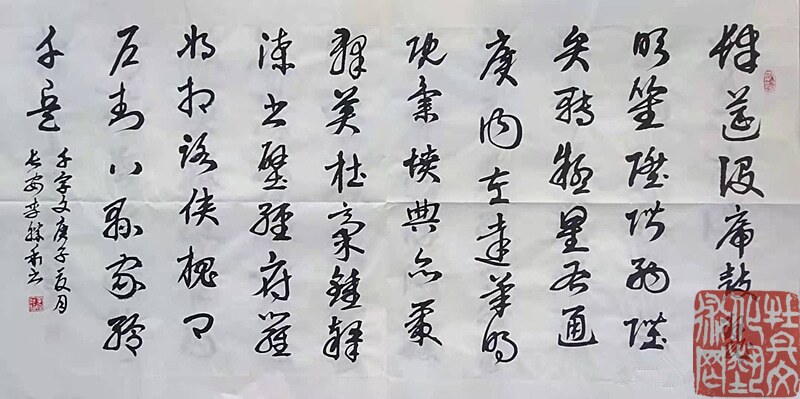 肆筵設席鼓
吹笙陞階納陛
弁轉疑星右通
廣內左達承明
既集墳典亦聚
群英杜稾鍾隸
漆书壁經府羅
将相路俠槐卿
户封八縣家給
千兵
千字文庚子夏月
长安李勝利书